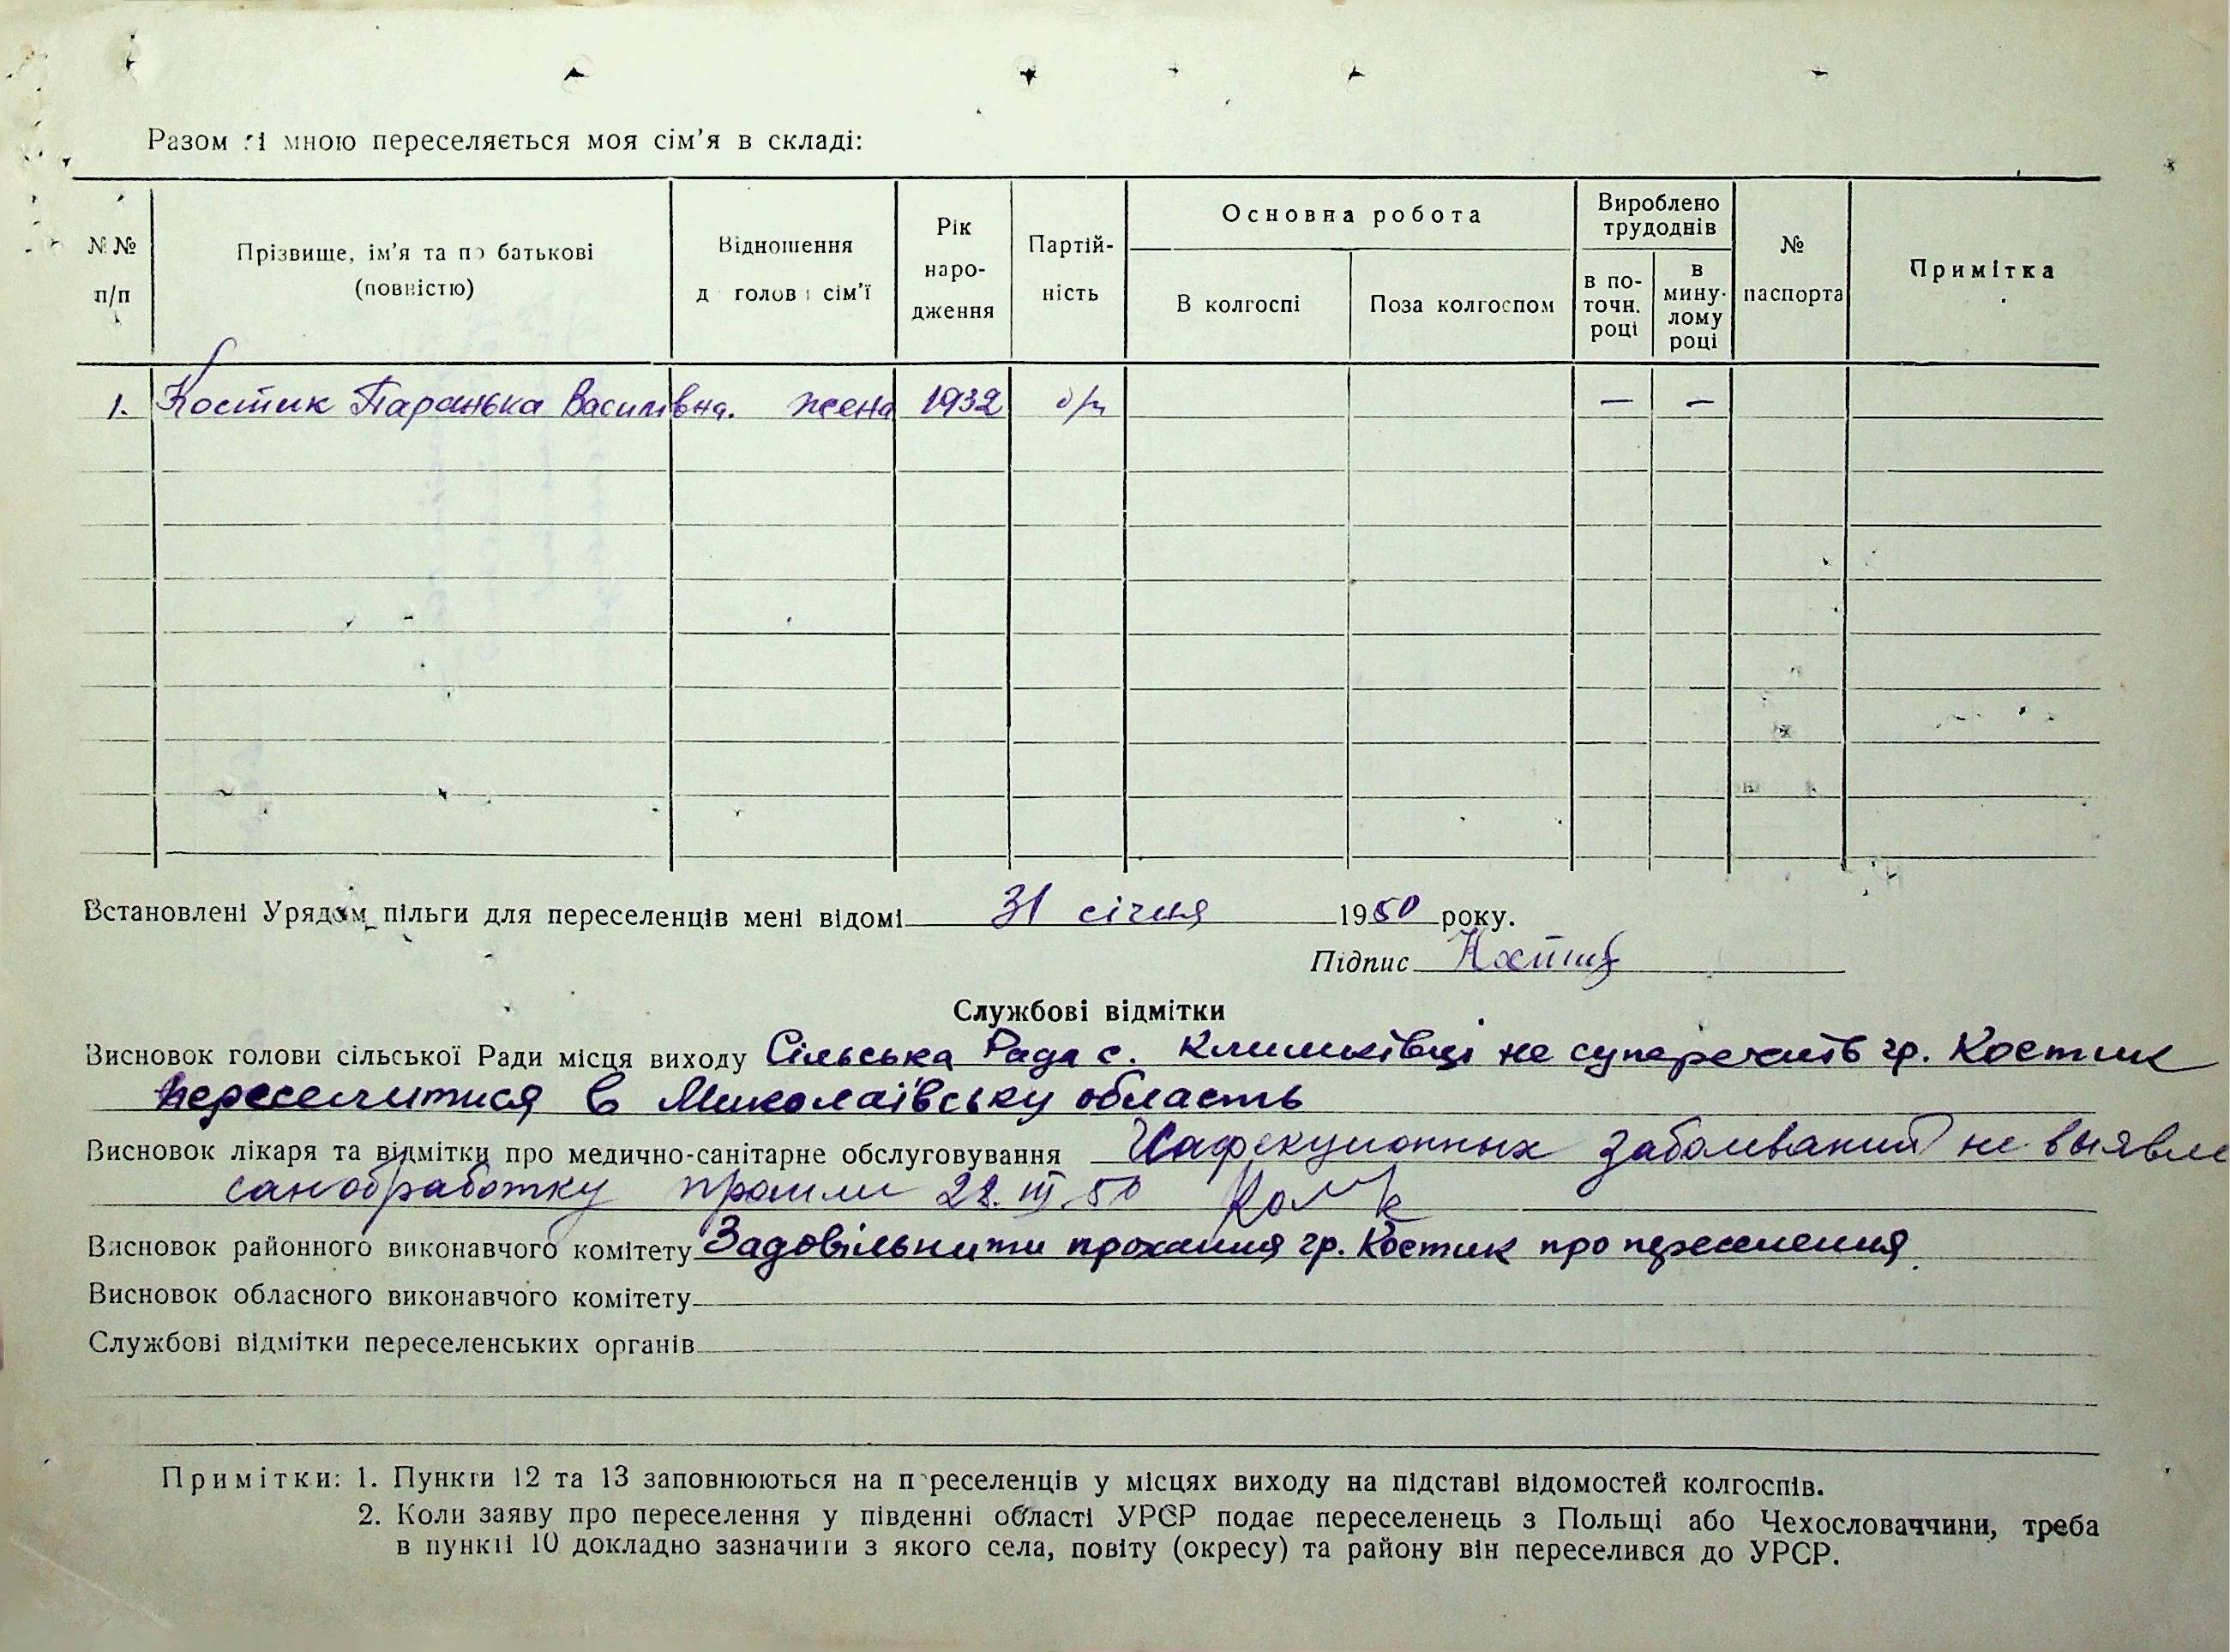 Разом зі мною переселяється моя сім'я в складі:
№№ п/п
Прізвище, ім'я та по батькові (повністю)
Відношення д голови сім'ї
Рік наро-дження
Партій-ність
Основна робота
В колгоспі
Поза колгоспом
Вироблено трудоднів
в по-точн. році
в мину-лому році
№ паспорта
Примітка
1. Костик Паранька Василівна. жена 1932 б/п — —
Встановлені Урядом пільги для переселенців мені відомі 31 січня 1950 року.
Підпис Костик
Службові відмітки
Висновок голови сільської Ради місця виходу Сільська Рада с. Климківці не суперечить гр. Костик
переселитися в Миколаївську область
Висновок лікаря та відмітки про медично-санітарне обслуговування Инфекционных заболеваний не выявле
санобработку прошли 22.III.50
Висновок районного виконавчого комітету Задовільнити прохання гр. Костик про переселення.
Висновок обласного виконавчого комітету
Службові відмітки переселенських органів
Примітки: 1. Пункти 12 та 13 заповнюються на переселенців у місцях виходу на підставі відомостей колгоспів.
2. Коли заяву про переселення у південні області УРСР подає переселенець з Польщі або Чехословаччини, треба
в пункті 10 докладно зазначити з якого села, повіту (окресу) та району він переселився до УРСР.